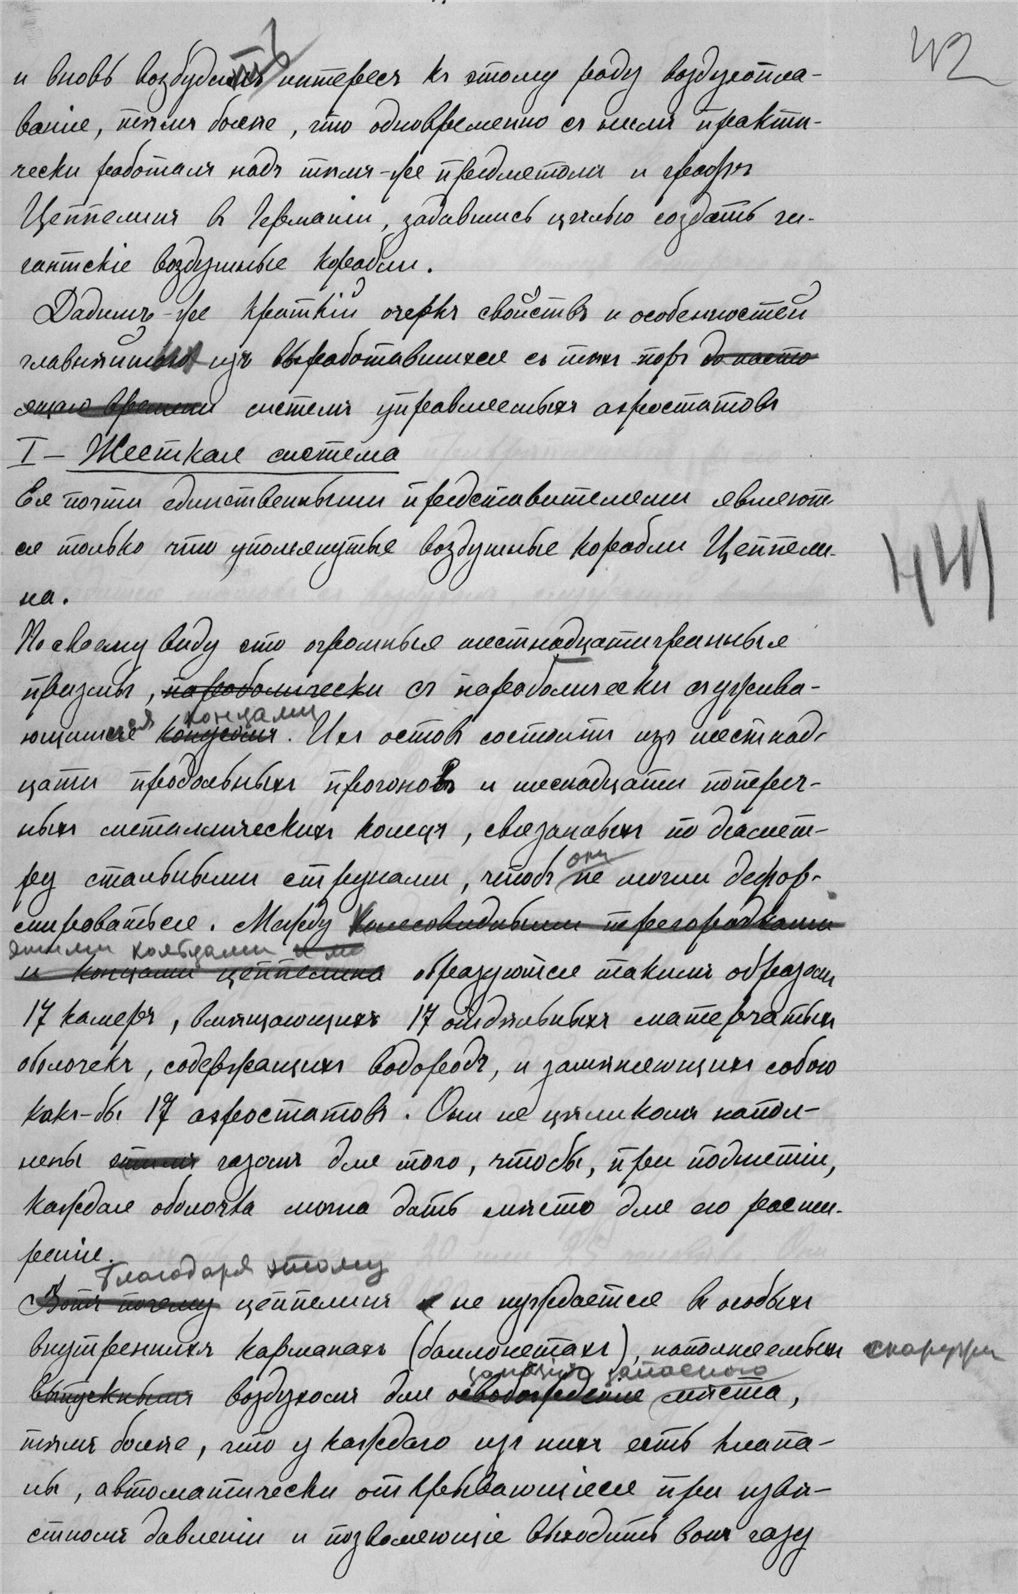 42
и вновь возбудить интересъ къ этому роду воздухопла-
ванiе, тѣмъ болѣе, что одновременно съ нимъ практи-
чески работалъ надъ тѣмъ-же предметомъ и графъ
Цеппелинъ въ Германiи, задавшись цѣлью создать ги-
гантскiе воздушные корабли.
Дадимъ-же краткiй очеркъ свойствъ и особенностей
главнѣйшихъ изъ выработавшихся съ тѣхъ поръ до насто
ящаго времени системъ управляемыхъ аэростатовъ
I – Жесткая система
Ея почти единственными представителями являют-
ся только что упомянутые воздушные корабли Цеппели-
на.
441
По своему виду это огромныя шестнадцатигранныя
призмы, параболически съ параболически съужива-
ющимися концами
конусами. Ихъ остовъ состоитъ изъ шестнад-
цати продольныхъ прогоновъ и шеснадцати попереч-
ныхъ металлическихъ колецъ, связанныхъ по дiамет-
ру стальными струнами, чтобъ они не могли дефор-
мироваться. Между колесовидными перегородками
этими кольцами
и концами цеппелина образуются такимъ образомъ
17 камеръ, вмѣщающихъ 17 отдѣльныхъ матерчатыхъ
оболочекъ, содержащихъ водородъ, и замѣняющихъ собою
какъ-бы 17 аэростатовъ. Они не цѣликомъ напол-
нены этимъ газомъ для того, чтобы, при поднятiи,
каждая оболочка могла дать мѣсто для его расши-
ренiя.
Благодаря этому
Вотъ почему цеппелинъ не нуждается въ особыхъ
внутреннихъ карманахъ (баллонетахъ), наполняемыхъ снаружи
запаснаго
выпускнымъ воздухомъ для освобожденiя мѣста,
тѣмъ болѣе, что у каждаго изъ нихъ есть клапа-
ны, автоматически открывающiеся при извѣ-
стномъ давленiи и позволяющiе выходить вонъ газу